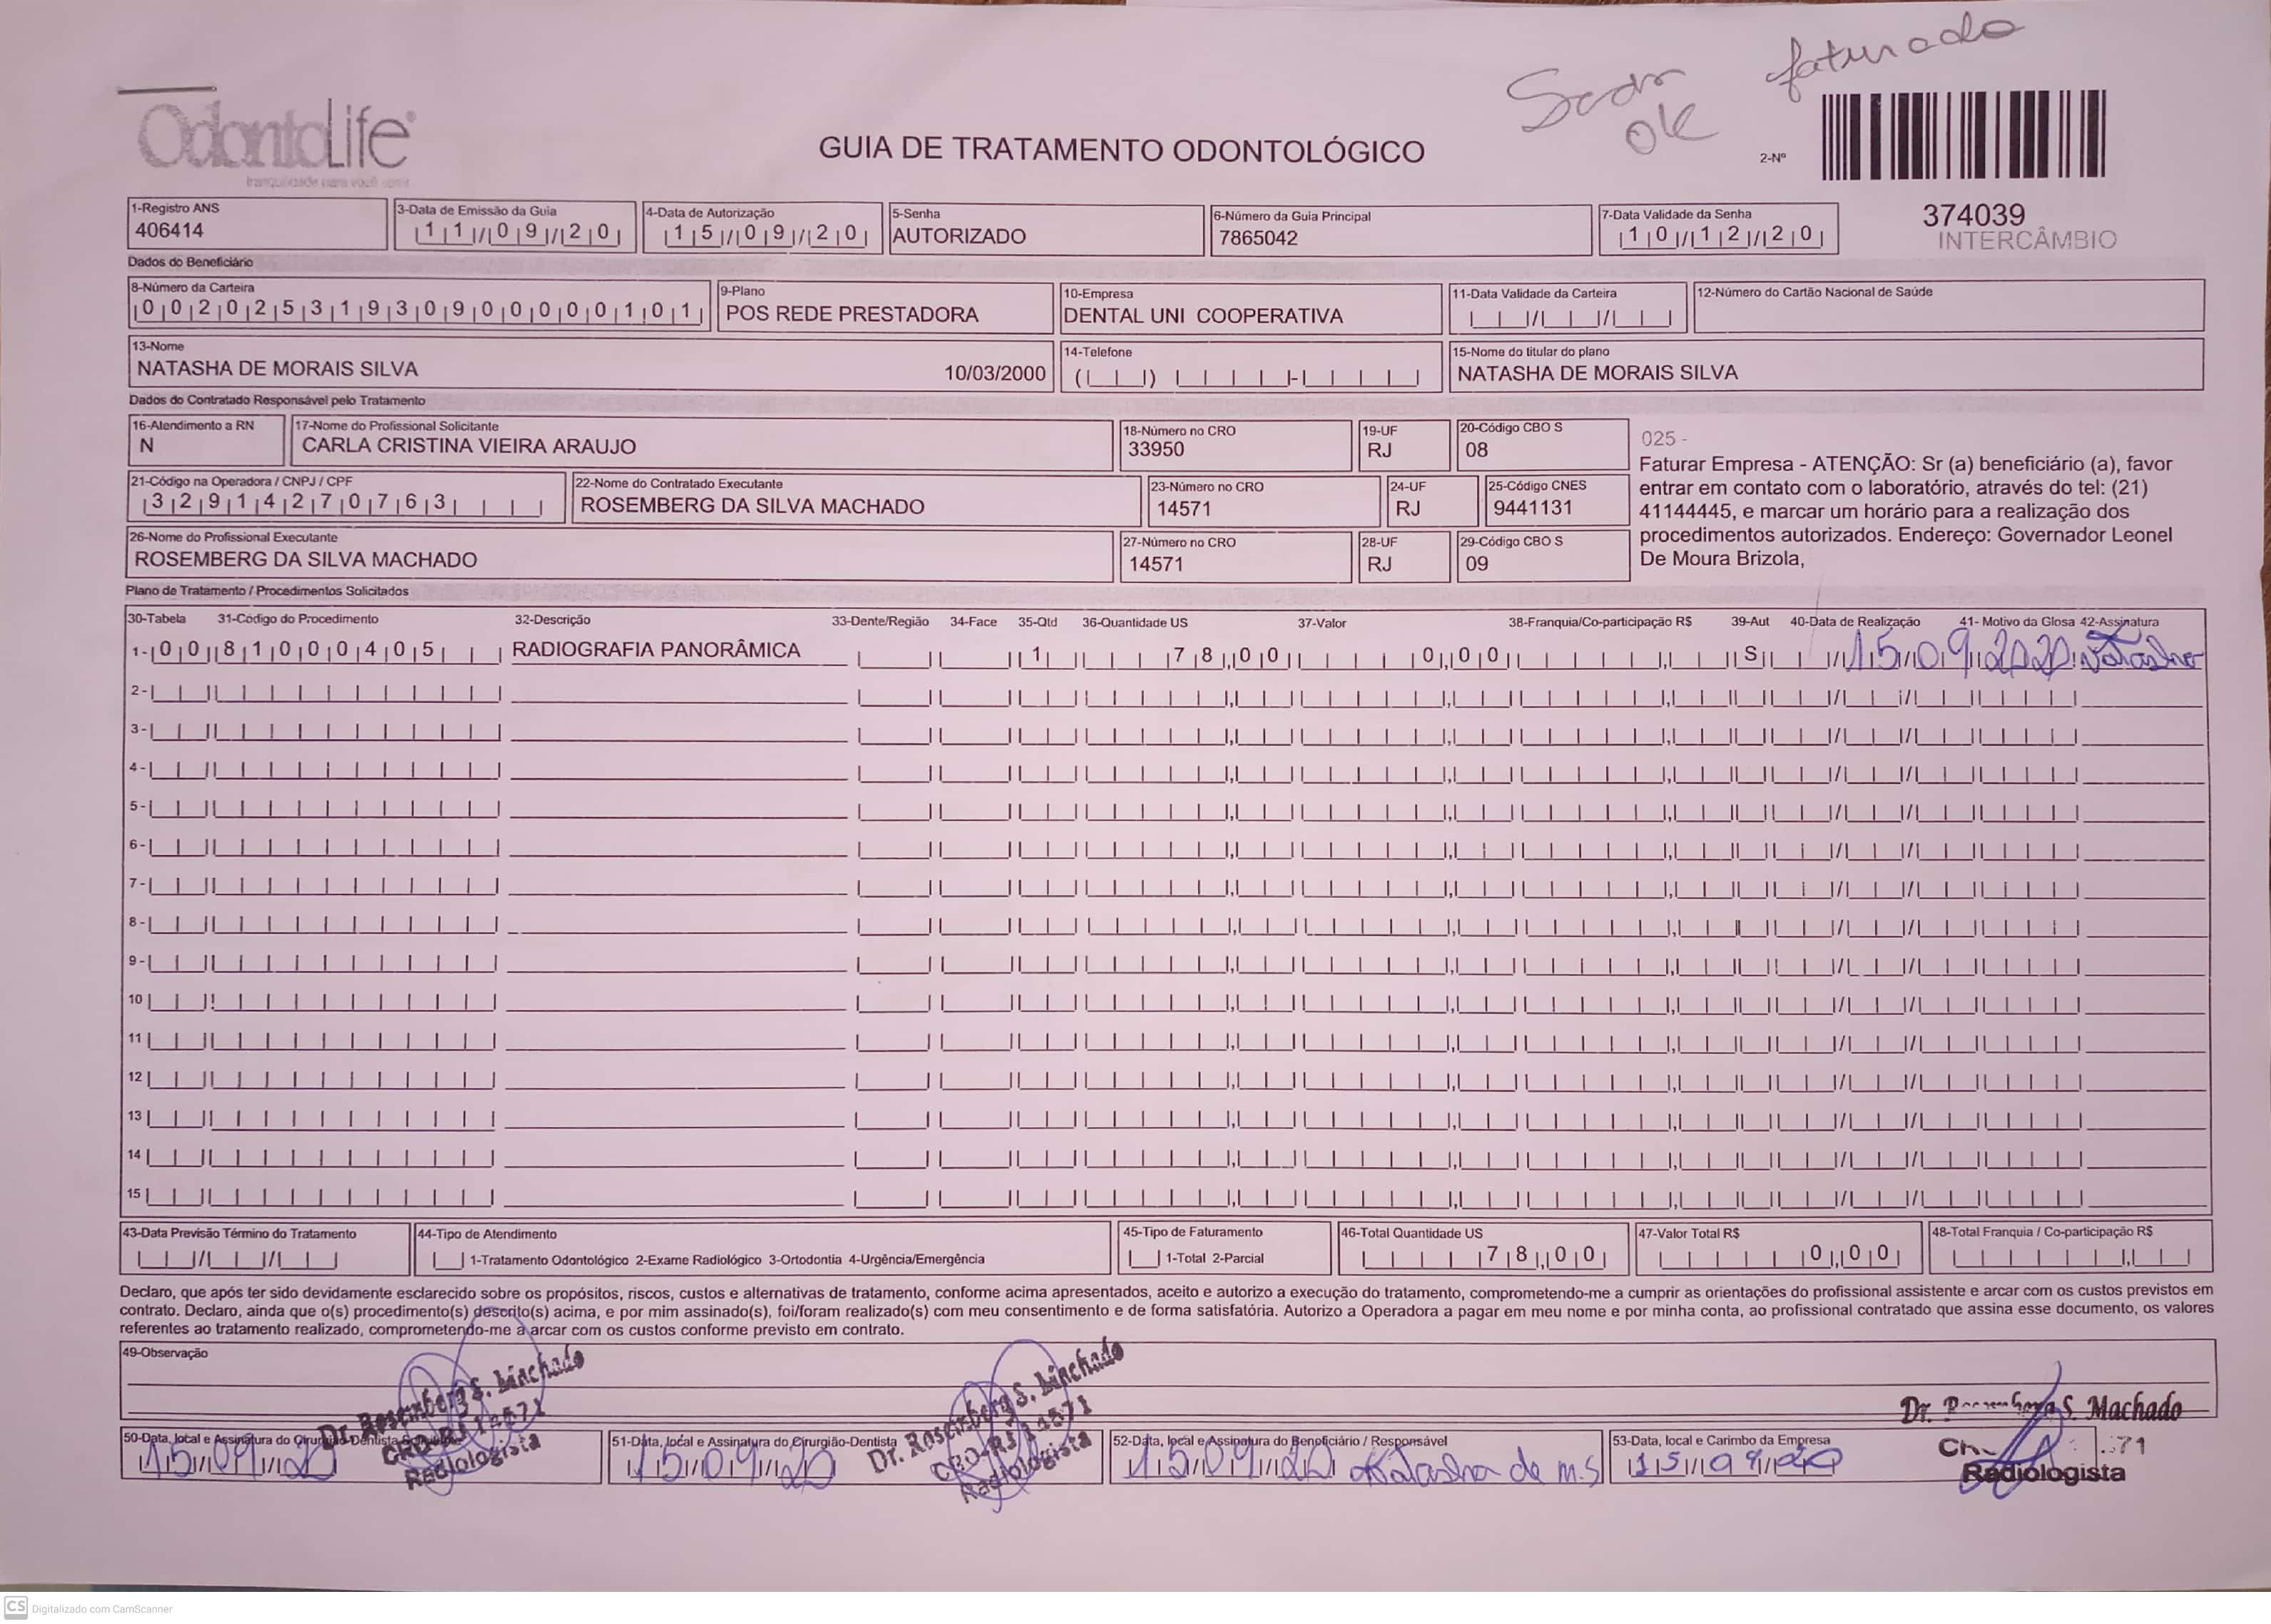 faturado
Scan
ok
OdontoLife
tranquilidade para você sorrir
GUIA DE TRATAMENTO ODONTOLÓGICO
2-Nº
374039
INTERCÂMBIO
1-Registro ANS
406414
3-Data de Emissão da Guia
11/09/20
4-Data de Autorização
15/09/20
5-Senha
AUTORIZADO
6-Número da Guia Principal
7865042
7-Data Validade da Senha
10/12/20
Dados do Beneficiário
8-Número da Carteira
00202531930900000101
9-Plano
POS REDE PRESTADORA
10-Empresa
DENTAL UNI COOPERATIVA
11-Data Validade da Carteira
12-Número do Cartão Nacional de Saúde
13-Nome
NATASHA DE MORAIS SILVA 10/03/2000
14-Telefone
15-Nome do titular do plano
NATASHA DE MORAIS SILVA
Dados do Contratado Responsável pelo Tratamento
16-Atendimento a RN
N
17-Nome do Profissional Solicitante
CARLA CRISTINA VIEIRA ARAUJO
18-Número no CRO
33950
19-UF
RJ
20-Código CBO S
08
025 -
Faturar Empresa - ATENÇÃO: Sr (a) beneficiário (a), favor
entrar em contato com o laboratório, através do tel: (21)
41144445, e marcar um horário para a realização dos
procedimentos autorizados. Endereço: Governador Leonel
De Moura Brizola,
21-Código na Operadora / CNPJ / CPF
32914270763
22-Nome do Contratado Executante
ROSEMBERG DA SILVA MACHADO
23-Número no CRO
14571
24-UF
RJ
25-Código CNES
9441131
26-Nome do Profissional Executante
ROSEMBERG DA SILVA MACHADO
27-Número no CRO
14571
28-UF
RJ
29-Código CBO S
09
Plano de Tratamento / Procedimentos Solicitados
30-Tabela 31-Código do Procedimento 32-Descrição 33-Dente/Região 34-Face 35-Qtd 36-Quantidade US 37-Valor 38-Franquia/Co-participação R$ 39-Aut 40-Data de Realização 41- Motivo da Glosa 42-Assinatura
1- 00 81000405 RADIOGRAFIA PANORÂMICA 1 78,00 0,00 S 15/09/2020 Natasha
2-
3-
4-
5-
6-
7-
8-
9-
10
11
12
13
14
15
43-Data Previsão Término do Tratamento
44-Tipo de Atendimento
1-Tratamento Odontológico 2-Exame Radiológico 3-Ortodontia 4-Urgência/Emergência
45-Tipo de Faturamento
1-Total 2-Parcial
46-Total Quantidade US
78,00
47-Valor Total R$
0,00
48-Total Franquia / Co-participação R$
Declaro, que após ter sido devidamente esclarecido sobre os propósitos, riscos, custos e alternativas de tratamento, conforme acima apresentados, aceito e autorizo a execução do tratamento, comprometendo-me a cumprir as orientações do profissional assistente e arcar com os custos previstos em
contrato. Declaro, ainda que o(s) procedimento(s) descrito(s) acima, e por mim assinado(s), foi/foram realizado(s) com meu consentimento e de forma satisfatória. Autorizo a Operadora a pagar em meu nome e por minha conta, ao profissional contratado que assina esse documento, os valores
referentes ao tratamento realizado, comprometendo-me a arcar com os custos conforme previsto em contrato.
49-Observação
50-Data, local e Assinatura do Cirurgião-Dentista
15/09/20
Dr. Rosemberg S. Machado
CRO-RJ 14571
Radiologista
51-Data, local e Assinatura do Cirurgião-Dentista
15/09/20
Dr. Rosemberg S. Machado
CRO-RJ 14571
Radiologista
52-Data, local e Assinatura do Beneficiário / Responsável
15/09/20 Natasha de M.S
53-Data, local e Carimbo da Empresa
15/09/20
Dr. Rosemberg S. Machado
71
Radiologista
CS Digitalizado com CamScanner